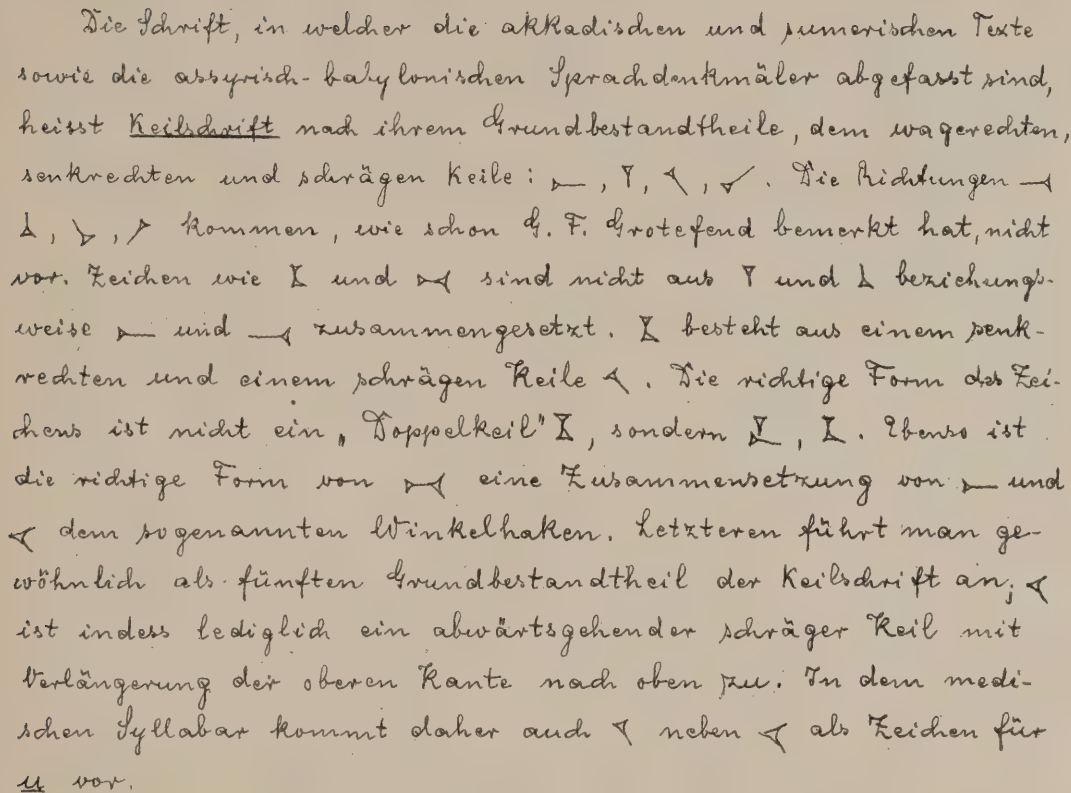 Die Schrift, in welcher die akkadischen und sumerischen Texte
sowie die assyrisch-babylonischen Sprachdenkmäler abgefasst sind,
heisst Keilschrift nach ihrem Grundbestandtheile, dem wagerechten,
senkrechten und schrägen Keile: 𒀸, 𒁹, 𒀹, 𒀺. Die Richtungen
, , kommen, wie schon G. F. Grotefend bemerkt hat, nicht
vor. Zeichen wie und sind nicht aus 𒁹 und beziehungs-
weise 𒀸 und zusammengesetzt. besteht aus einem senk-
rechten und einem schrägen Keile 𒀹. Die richtige Form des Zei-
chens ist nicht ein „Doppelkeil" , sondern , . Ebenso ist
die richtige Form von eine Zusammensetzung von 𒀸 und
𒌋 dem sogenannten Winkelhaken. Letzteren führt man ge-
wöhnlich als fünften Grundbestandtheil der Keilschrift an; 𒌋
ist indess lediglich ein abwärtsgehender schräger Keil mit
Verlängerung der oberen Kante nach oben zu. In dem medi-
schen Syllabar kommt daher auch 𒀹 neben 𒌋 als Zeichen für
u vor.